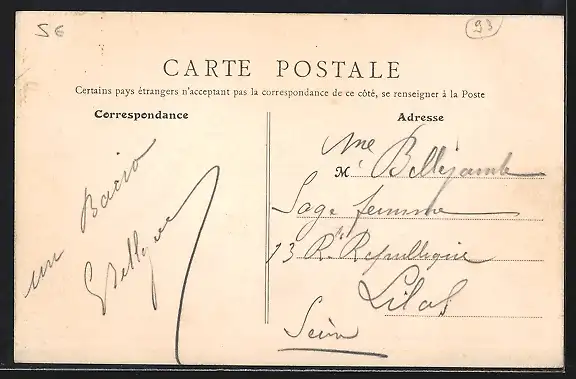 5€
93
CARTE POSTALE
Certains pays étrangers n'acceptant pas la correspondance de ce côté, se renseigner à la Poste
Correspondance
Adresse
un Bacio
Mme Bellejambe
M
Sage femme
13 R. de République
Lilas
Seine